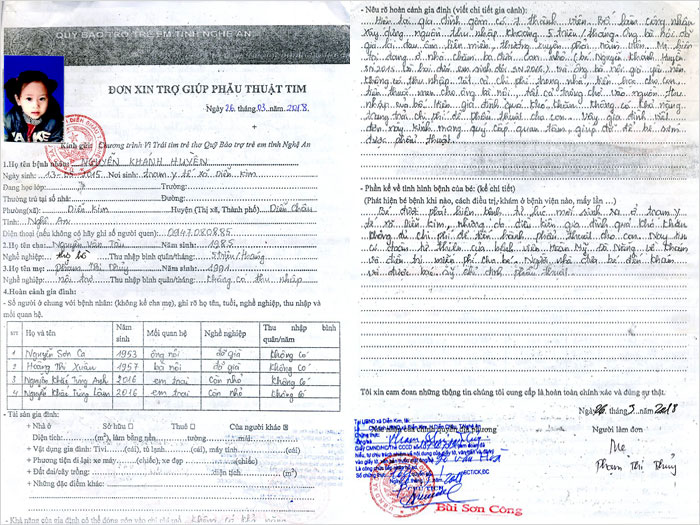 QUỸ BẢO TRỢ TRẺ EM TỈNH NGHỆ AN
ĐƠN XIN TRỢ GIÚP PHẪU THUẬT TIM
Ngày 26 tháng 03 năm 2018
Kính gửi: Chương trình Vì Trái tim trẻ thơ Quỹ Bảo trợ trẻ em tỉnh Nghệ An
1.Họ tên bệnh nhân: NGUYỄN KHÁNH HUYỀN
Ngày sinh: 2015 Nơi sinh: trạm y tế xã Diễn Kim
Đang học lớp: Trường:
Thường trú tại số nhà: Đường:
Phường(xã): Diễn Kim Huyện (Thị xã, Thành phố) Diễn Châu
Tỉnh: Nghệ An
Điện thoại (nếu không có hãy ghi số người quen): 0947.080885
2.Họ tên cha: Nguyễn Văn Tàu Năm sinh: 1985
Nghề nghiệp: thợ hồ Thu nhập bình quân/tháng: 5 triệu/tháng
3.Họ tên mẹ: Phạm Thị Thủy Năm sinh: 1991
Nghề nghiệp: nội trợ Thu nhập bình quân/tháng: Không có thu nhập
4.Hoàn cảnh gia đình:
- Số người ở chung với bệnh nhân: (không kể cha mẹ), ghi rõ họ tên, tuổi, nghề nghiệp, thu nhập và
mối quan hệ.
STT Họ và tên Năm sinh Mối quan hệ Nghề nghiệp Thu nhập bình quân/năm
1 Nguyễn Sơn Ca 1953 ông nội đã già Không có
2 Hoàng Thị Xuân 1957 bà nội đã già Không có
3 Nguyễn Khải Tùng Anh 2016 em trai Còn nhỏ Không có
4 Nguyễn Khải Tùng Lâm 2016 em trai Còn nhỏ Không có
- Tài sản gia đình:
+ Nhà ở Sở hữu Thuê Của người khác
Diện tích: (m²), làm bằng nền, tường: mái:
+ Vật dụng gia đình: Tivi (cái), tủ lạnh (cái), máy tính (cái)
+ Phương tiện đi lại: xe máy (chiếc), xe đạp (chiếc)
+ Đất đai/cây trồng: diện tích (m²)
+ Những đặc điểm khác:
- Khả năng của gia đình có thể đóng góp vào chi phí mổ: Không có khả năng
- Nêu rõ hoàn cảnh gia đình (viết chi tiết gia cảnh):
Hiện tại gia đình gồm có 7 thành viên. Bố làm công nhân
xây dựng nguồn thu nhập khoảng 5 triệu/tháng. Ông bà nội đã
già lại đau ốm liên miên thường xuyên phải nằm viện. Mẹ hiện
tại đang ở nhà chăm ba đứa con nhỏ (bé Nguyễn Khánh Huyền
sn 2015 và hai đứa em sinh đôi sn 2016) và ông bà nội già yếu nên
không có thu nhập. Tất cả chi phí trong nhà, tiền học cho con,
tiền thuốc men cho ông bà nội, tất cả trông chờ vào nguồn thu
nhập của bố. Hiện gia đình quá khó khăn, không có khả năng
trang trải chi phí để phẫu thuật cho con. Vậy gia đình viết
đơn này kính mong quý cấp quan tâm, giúp đỡ để bé sớm
được phẫu thuật.
- Phần kể về tình hình bệnh của bé: (kể chi tiết)
(Phát hiện bé bệnh khi nào, cách điều trị, khám ở bệnh viện nào, mấy lần ...)
Bé được phát hiện bệnh từ lúc mới sinh ra ở trạm y
tế xã Diễn Kim, nhưng do điều kiện gia đình quá khó khăn
không đủ chi phí để tiến hành phẫu thuật cho con. Nay khi
có đoàn từ thiện của bệnh viện Hoàn Mỹ Đà Nẵng về thăm
và điều trị miễn phí cho bé. Người nhà đưa bé đến khám
và được bác sỹ chỉ định phẫu thuật.
Tôi xin cam đoan những thông tin chúng tôi cung cấp là hoàn toàn chính xác và đúng sự thật.
Ngày 26 tháng 3 năm 2018
Xác nhận của chính quyền địa phương Người làm đơn
Mẹ
Phạm Thị Thủy
CHỦ TỊCH
Bùi Sơn Công